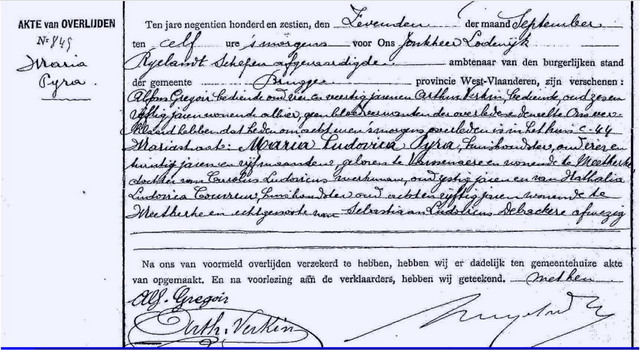 AKTE van OVERLIJDEN
Nr 845
Maria
Pyra.
Ten jare negentien honderd en zestien, den Zevenden der maand September
ten elf ure 's morgens voor Ons Jonkheer Lodewijk
Ryelandt Schepen afgevaardigde ambtenaar van den burgerlijken stand
der gemeente Brugge provincie West-Vlaanderen, zijn verschenen :
Alfons Gregoir bediende oud vier en veertig jaren en Arthur Verkin, bediende, oud zes en
vijftig jaren wonende alhier, geen bloedverwanten der overledene dewelke Ons ver-
klaard hebben dat heden om acht uren 's morgens overleden is in het huis C-44
Mariastraat: Maria Ludovica Pyra, huishoudster, oud vier en
twintig jaren en vijf maanden, geboren te en wonende te Meetkerke
dochter van Carolus Ludovicus werkman, oud zestig jaren en van Nathalia
Ludovica huishoudster oud acht en vijftig jaren wonende te
Meetkerke en echtgenoote van Sebastiaan Ludovicus Debackere afwezig
Na ons van voormeld overlijden verzekerd te hebben, hebben wij er dadelijk ten gemeentehuize akte
van opgemaakt. En na voorlezing aan de verklaarders, hebben wij geteekend. met hen
Alf. Gregoir
Arth. Verkin